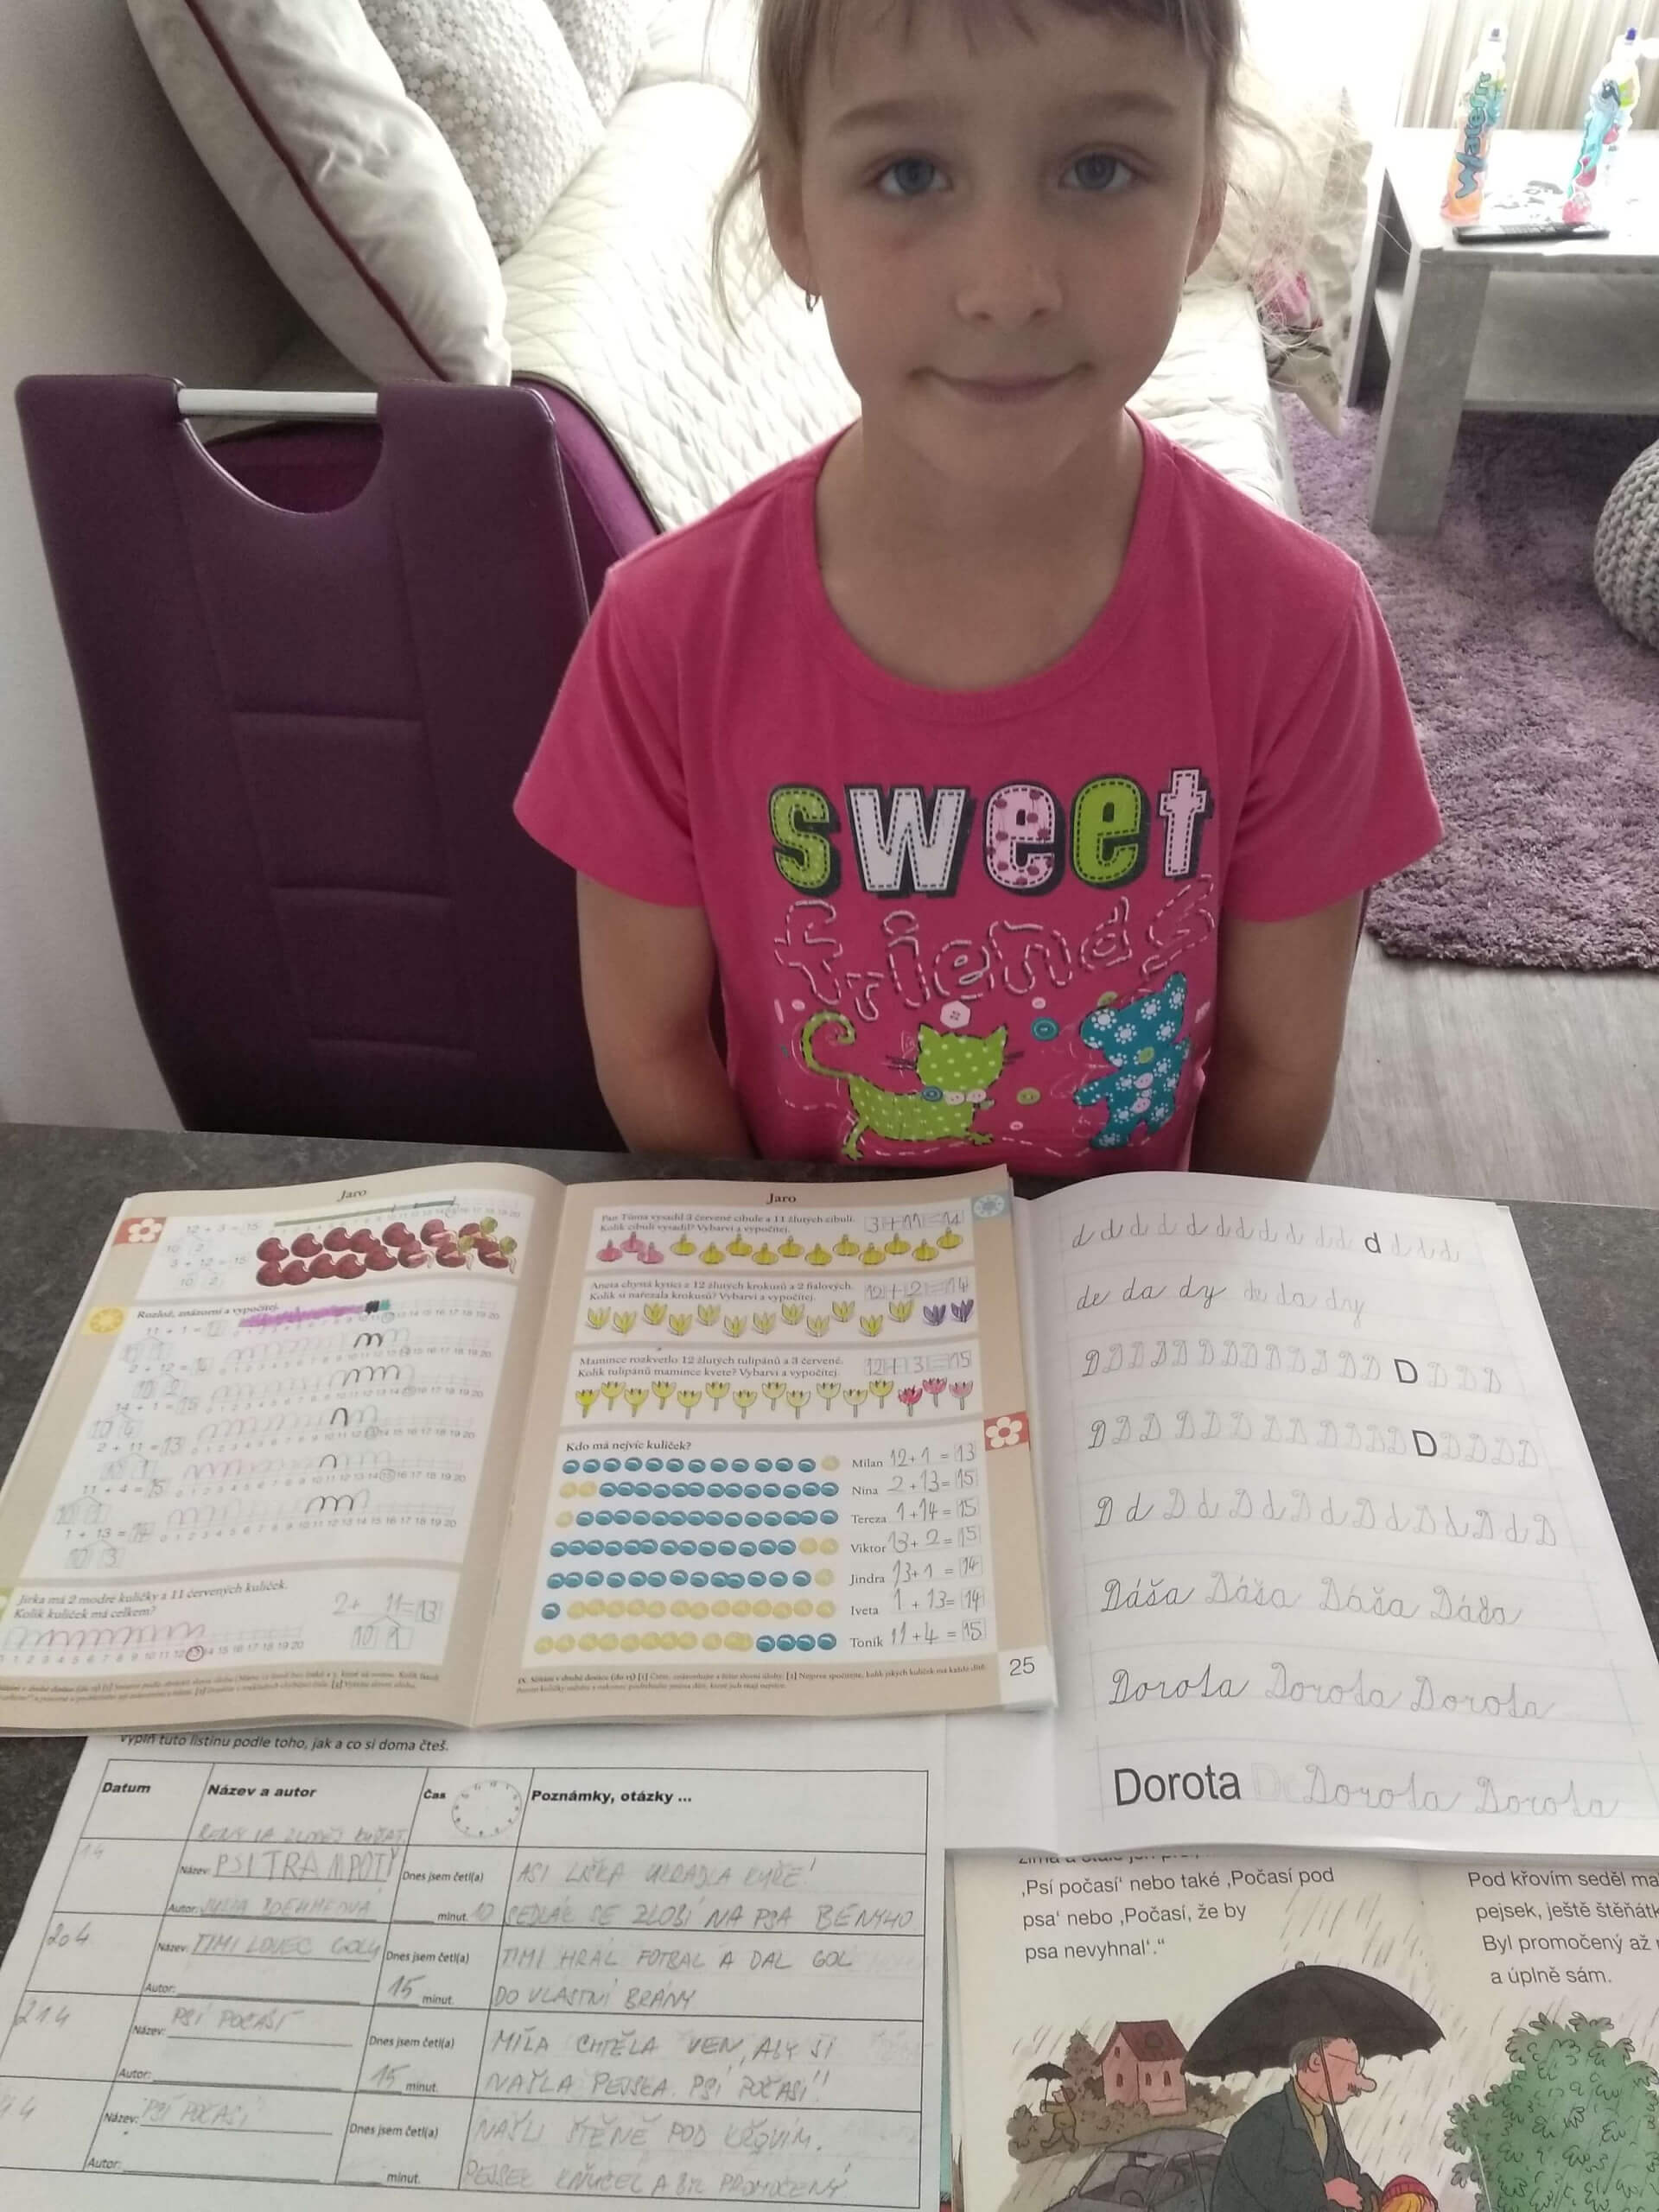 sweet
friends
Jaro
12 + 3 = 15
10 2
3 + 12 = 15
10 2
Rozlož, znázorni a vypočítej.
11 + 1 = 12
2 + 12 = 14
10 2
14 + 1 = 15
10 4
2 + 11 = 13
10 1
11 + 4 = 15
1 + 13 = 14
10 3
Jirka má 2 modré kuličky a 11 červených kuliček.
Kolik kuliček má celkem?
2 + 11 = 13
10 1
Jaro
Pan Tůma vysadil 3 červené cibule a 11 žlutých cibulí.
Kolik cibulí vysadil? Vybarvi a vypočítej.
3 + 11 = 14
Aneta chystá kytici z 12 žlutých krokusů a 2 fialových.
Kolik si nařezala krokusů? Vybarvi a vypočítej.
12 + 2 = 14
Mamince rozkvetlo 12 žlutých tulipánů a 3 červené.
Kolik tulipánů mamince kvete? Vybarvi a vypočítej.
12 + 3 = 15
Kdo má nejvíc kuliček?
Milan 12 + 1 = 13
Nina 2 + 13 = 15
Tereza 1 + 14 = 15
Viktor 13 + 2 = 15
Jindra 13 + 1 = 14
Iveta 1 + 13 = 14
Toník 11 + 4 = 15
25
d d d d d d d d d d d d d d d d
de da dy de da dy
D D D D D D D D D D D D D D D D D D
D D D D D D D D D D D D D D D D D D
D d D d D d D d D d D d D d D
Dáša Dáša Dáša Dáša
Dorota Dorota Dorota
Dorota Dorota Dorota
Vyplň tuto listinu podle toho, jak a co si doma čteš.
Datum Název a autor Čas Poznámky, otázky ...
Název: PSI TRAMPOTY Dnes jsem četl(a) ASI LIŠKA UKRADLA KUŘE!
Autor: minut. 10 SEDLÁK SE ZLOBÍ NA PSA BENYHO
20 4 Název: TIMI LOVEC GOLŮ Dnes jsem četl(a) TIMI HRÁL FOTBAL A DAL GOL
Autor: 15 minut. DO VLASTNÍ BRÁNY
21 4 Název: PSÍ POČASÍ Dnes jsem četl(a) MÍLA CHTĚLA VEN, ABY SI
Autor: 15 minut. NAŠLA PEJSKA. PSÍ POČASÍ!
Název: PSÍ POČASÍ Dnes jsem četl(a) NAŠLI ŠTĚNĚ POD KŘOVÍM.
Autor: minut. PEJSEK KŇUČEL A BYL PROMOČENÝ
‚Psí počasí‘ nebo také ‚Počasí pod
psa‘ nebo ‚Počasí, že by
psa nevyhnal‘.“
Pod křovím seděl
pejsek, ještě
Byl promočený až
a úplně sám.